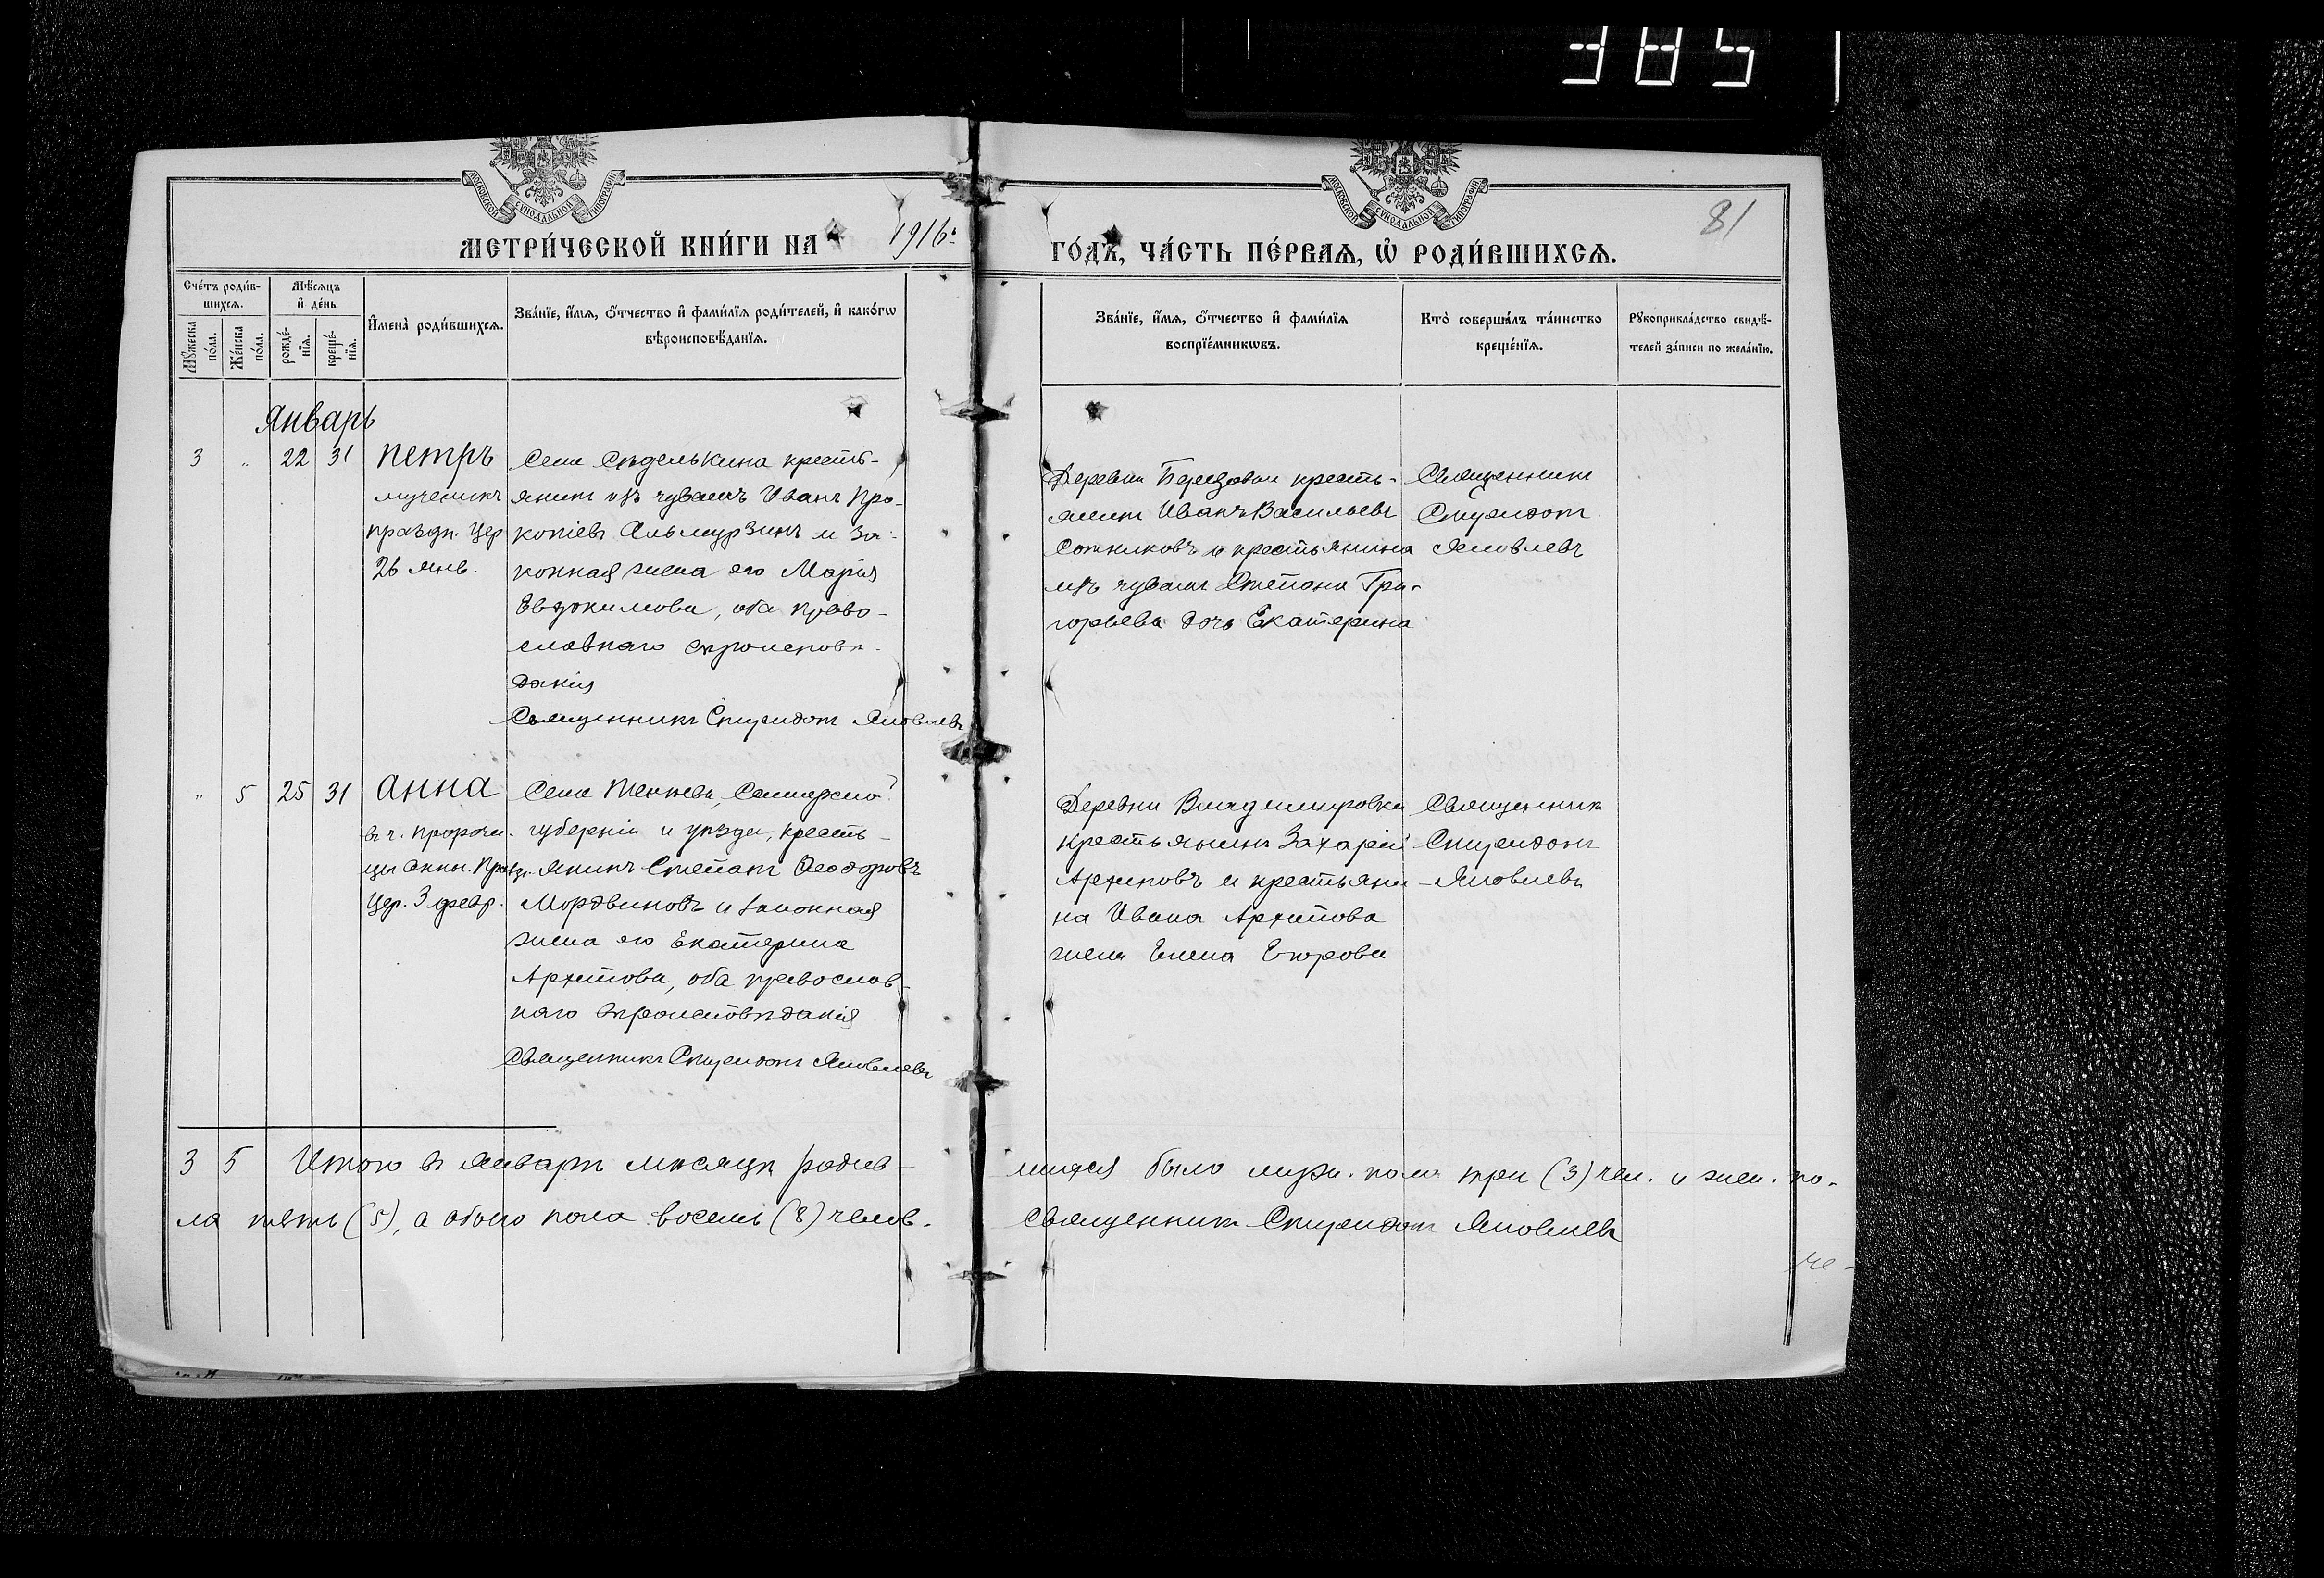 385
МОСКОВСКОЙ СУНОДАЛЬНОЙ ТИПОГРАФІИ
МОСКОВСКОЙ СУНОДАЛЬНОЙ ТИПОГРАФІИ
81
МЕТРИ́ЧЕСКОЙ КНИ́ГИ НА 1916 г.
ГО́ДЪ, ЧА́СТЬ ПЕ́РВАѦ, Ѡ҆ РОДИ́ВШИХСѦ.
Сче́тъ роди́в-
шихсѧ.
Мѣ́сѧцъ
и҆ де́нь
Мꙋ́жеска по́ла.
Же́нска по́ла.
рожде́-
нїѧ.
креще́-
нїѧ.
И҆мена̀ роди́вшихсѧ.
Зва́нїе, и҆́мѧ, ѻ҆́тчество и҆ фами́лїѧ роди́телей, и҆ како́гѡ
вѣроисповѣ́данїѧ.
Зва́нїе, и҆́мѧ, ѻ҆́тчество и҆ фами́лїѧ
воспрїе́мникѡвъ.
Кто̀ соверша́лъ та́инство
креще́нїѧ.
Рꙋкоприкла́дство свидѣ́-
телей за́писи по жела́нїю.
Январь
3 " 22 31 Петръ
мученикъ
праздн. Цер
26 янв.
Села Сѣделькина кресть-
янинъ изъ чувашъ Иванъ Про-
копіевъ Альмурзинъ и за-
конная жена его Марія
Евдокимова, оба право-
славнаго вѣроисповѣ-
данія
Священникъ Спиридонъ Яковлевъ
Деревни Березовки кресть-
янинъ Иванъ Васильевъ
Сотниковъ и крестьянина
изъ чувашъ Степана Гри-
горьева дочь Екатерина
Священникъ
Спиридонъ
Яковлевъ
" 5 25 31 Анна
въ ч. пророчи-
цы Анны. Празд.
Цер. 3 февр.
Села Самарской
губерніи и уѣзда, кресть-
янинъ Степанъ Ѳеодоровъ
Мордвиновъ и законная
жена его Екатерина
Архипова, оба православ-
наго вѣроисповѣданія
Священникъ Спиридонъ Яковлевъ
Деревни Владимировки
крестьянинъ Захарій
Архиповъ и крестьяни-
на Ивана Архипова
жена Елена Егорова
Священникъ
Спиридонъ
Яковлевъ
3 5 Итого въ Январѣ мѣсяцѣ родив-
шихся было муж. пола три (3) чел. и жен. по-
ла пять (5), а обоего пола восемь (8) челов.
Священникъ Спиридонъ Яковлевъ